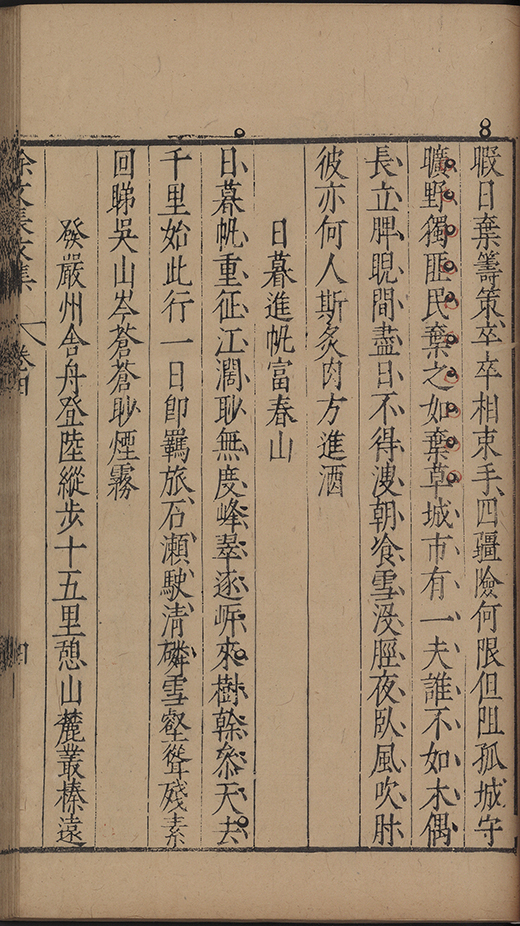 8
暇日棄籌策卒卒相束手四疆險何限但阻孤城守
曠野獨匪民棄之如棄草城市有一夫誰不如木偶
長立脾睨間盡日不得溲朝飡雪没脛夜臥風吹肘
彼亦何人斯炙肉方進酒
日暮進帆富春山
日暮帆重征江濶眇無度峰翠逐岸來樹榦叅天去
千里始此行一日卽羈旅石瀨駛清磷雪壑聳殘素
回睇吳山岑蒼蒼眇煙霧
發嚴州舍舟登陸縱步十五里憩山麓叢榛遠
徐文長文集 卷四 四